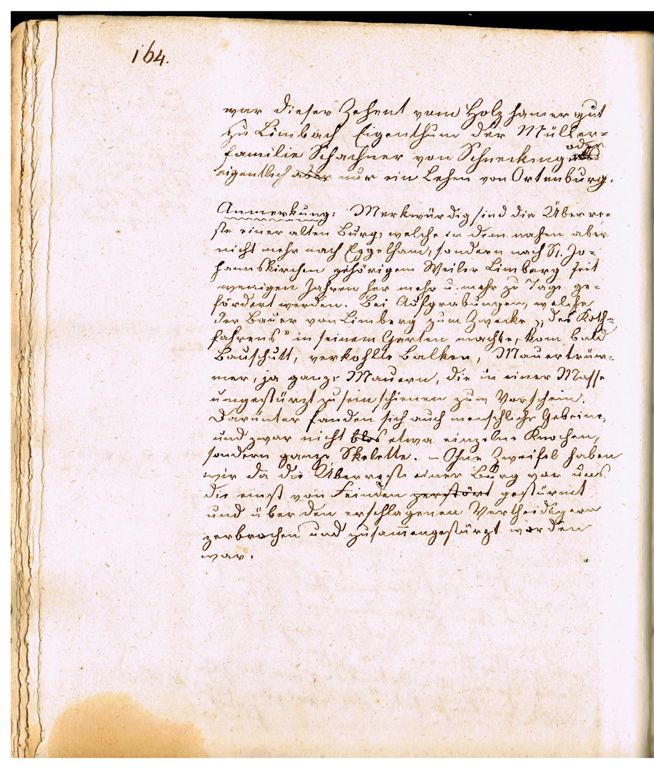 164.
war dieser Zehent vom Holzhamergut
zu Limbach Eigenthum der Müller-
familie Schachner von Schnecking oder
eigentlich aber nur ein Lehen von Ortenburg.
Anmerkung: Merkwürdig sind die Überre-
ste einer alten Burg, welche in dem nahen aber
nicht mehr nach Eggelham, sondern nach St. Jo-
hanniskirchen gehörigem Weiler Limberg seit
wenigen Jahren her mehr u. mehr zu Tage ge-
fördert werden. Bei Aufgrabungen, welche
der Bauer von Limberg zum Zwecke „des Koth-
fahrens" in seinem Garten machte, kom bald
Bauschutt, verkohlte Balken, Mauertrüm-
mer, ja ganze Mauern, die in einer Masse
umgestürzt zu sein schienen zum Vorschein.
Darunter fanden sich auch menschliche Gebeine,
und zwar nicht blos etwa einzelne Knochen,
sondern ganze Skelette. – Ohne Zweifel haben
wir da die Überreste einer Burg vor uns
die einst von Feinden zerstört gestürmt
und über den erschlagenen Vertheidigern
zerbrochen und zusammengestürzt worden
war.